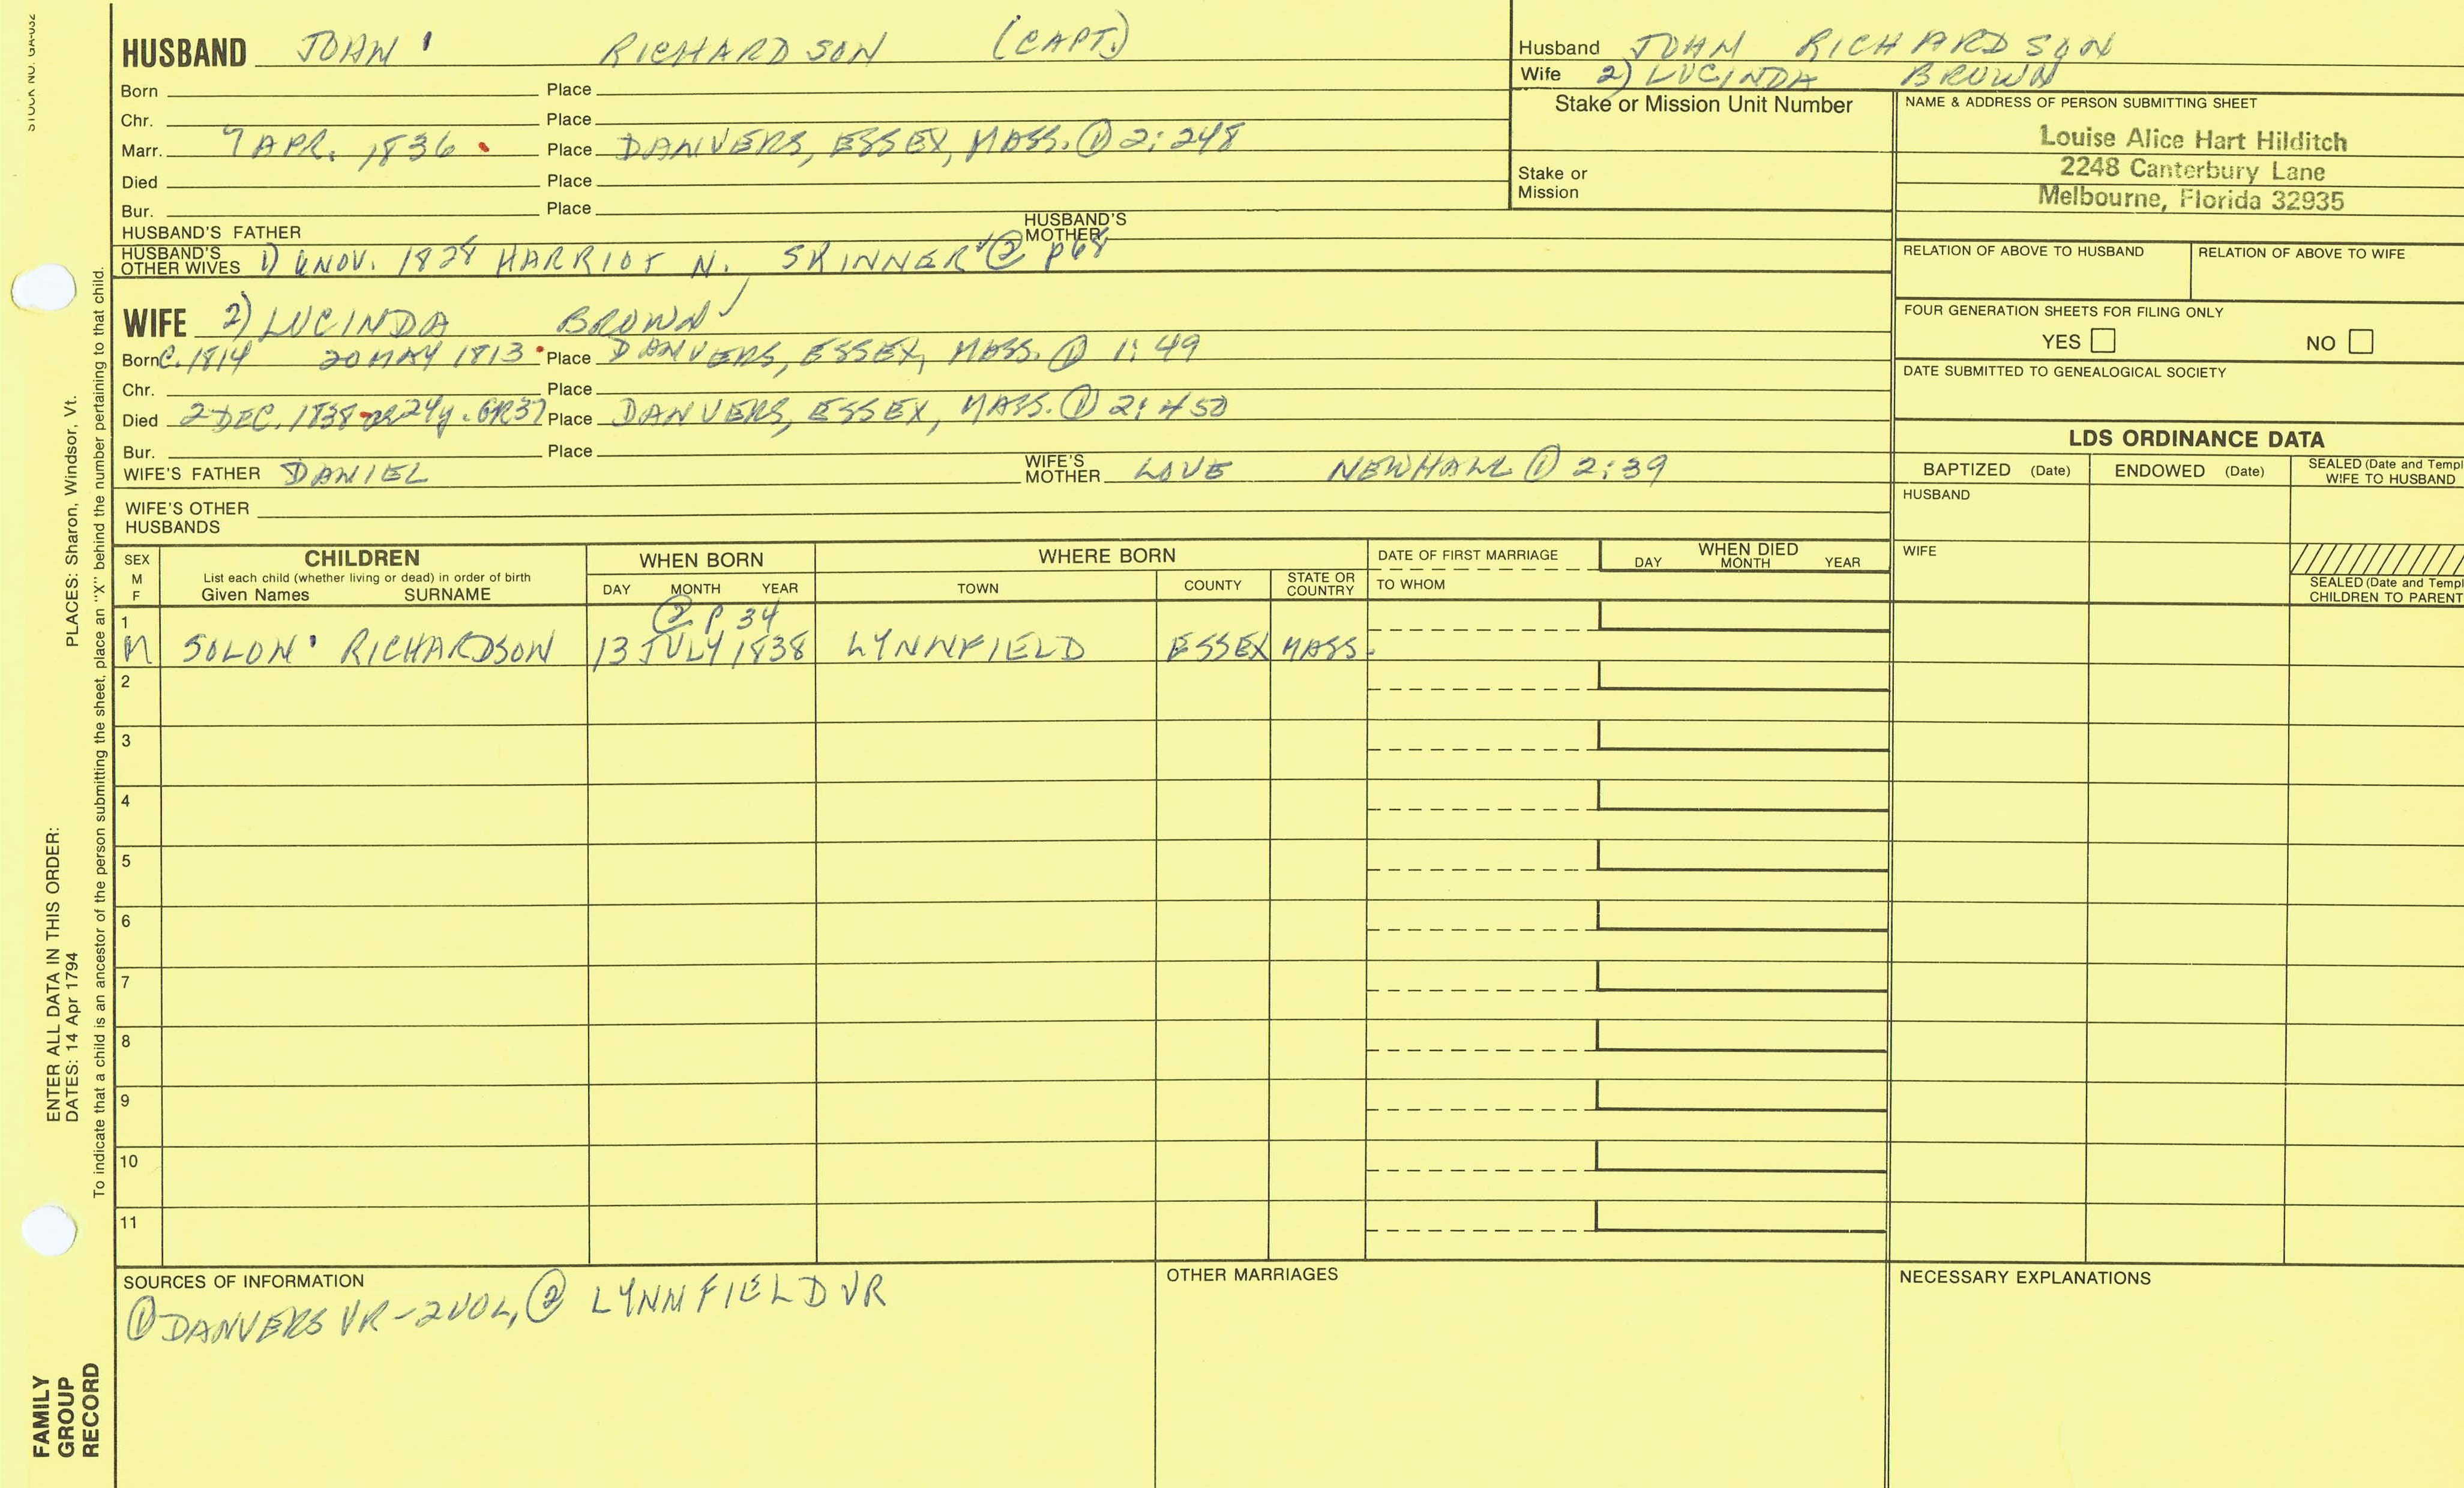 STOCK NO. GA-032
HUSBAND JOHN RICHARDSON (CAPT.)
Born Place
Chr. Place
Marr. 7 APR. 1836 Place DANVERS, ESSEX, MASS. ① 2:248
Died Place
Bur. Place
HUSBAND'S FATHER HUSBAND'S MOTHER
HUSBAND'S OTHER WIVES 1) NOV. 1828 HARRIOT N. SKINNER ② p68
WIFE 2) LUCINDA BROWN
Born C. 1814 20 MAY 1813 Place DANVERS, ESSEX, MASS. ① 1:49
Chr. Place
Died 2 DEC. 1838 ae 24y. GR37 Place DANVERS, ESSEX, MASS. ① 2:450
Bur. Place
WIFE'S FATHER DANIEL WIFE'S MOTHER LOVE NEWHALL ① 2:39
WIFE'S OTHER HUSBANDS
Husband JOHN RICHARDSON
Wife 2) LUCINDA BROWN
Stake or Mission Unit Number
Stake or
Mission
NAME & ADDRESS OF PERSON SUBMITTING SHEET
Louise Alice Hart Hilditch
2248 Canterbury Lane
Melbourne, Florida 32935
RELATION OF ABOVE TO HUSBAND RELATION OF ABOVE TO WIFE
FOUR GENERATION SHEETS FOR FILING ONLY
YES NO
DATE SUBMITTED TO GENEALOGICAL SOCIETY
LDS ORDINANCE DATA
BAPTIZED (Date) ENDOWED (Date) SEALED (Date and Templ
WIFE TO HUSBAND
HUSBAND
WIFE
SEALED (Date and Templ
CHILDREN TO PARENT
SEX
M
F
CHILDREN
List each child (whether living or dead) in order of birth
Given Names SURNAME
WHEN BORN
DAY MONTH YEAR
WHERE BORN
TOWN COUNTY STATE OR COUNTRY
DATE OF FIRST MARRIAGE
TO WHOM
WHEN DIED
DAY MONTH YEAR
1 ② P 34
M SOLON RICHARDSON 13 JULY 1838 LYNNFIELD ESSEX MASS.
2
3
4
5
6
7
8
9
10
11
SOURCES OF INFORMATION
① DANVERS VR - 2 VOL, ② LYNNFIELD VR
OTHER MARRIAGES
NECESSARY EXPLANATIONS
PLACES: Sharon, Windsor, Vt.
ENTER ALL DATA IN THIS ORDER:
DATES: 14 Apr 1794
To indicate that a child is an ancestor of the person submitting the sheet, place an "X" behind the number pertaining to that child.
FAMILY
GROUP
RECORD